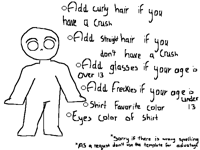 ○Add curly hair if you
have a crush
○Add straight hair if you
don't have a crush
○Add glasses if your age is
over 13
○Add freckles if your age is
under 13
○Shirt Favorite color
○Eyes color of shirt
*Sorry if there is wrong spelling
*AS a request don't use the template for advantage